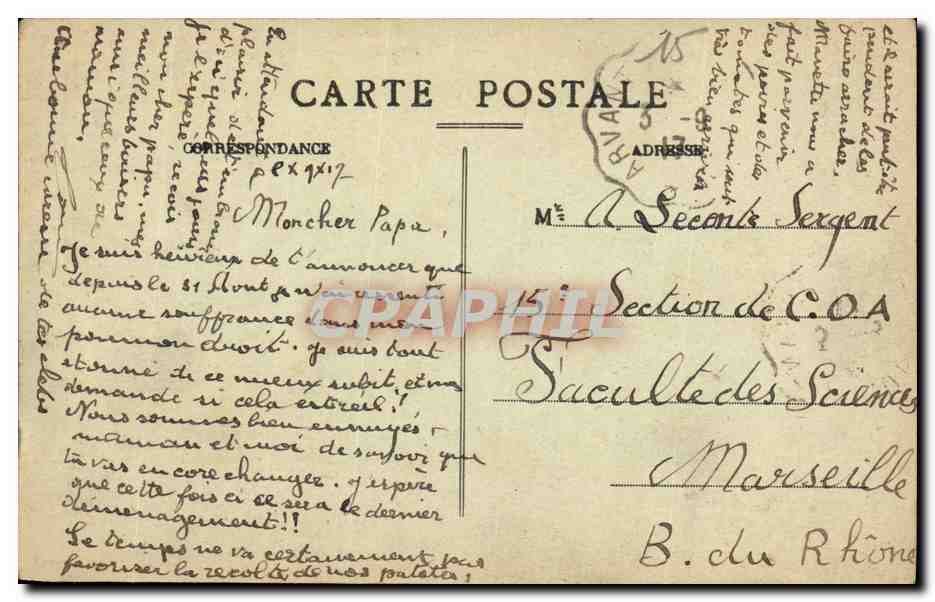 CARTE POSTALE
CORRESPONDANCE
ADRESSE
9 IX 1917
Mon cher Papa,
Je suis heureux de t'annoncer que
depuis le 31 Août je n'ai ressenti
aucune souffrance dans mon
poumon droit. Je suis tout
étonné de ce mieux subit, et me
demande si cela est réel!!
Nous sommes bien ennuyés,
maman et moi de savoir que
tu vas encore changer. J'espère
que cette fois ci ce sera le dernier
déménagement!!
Le temps ne va certainement pas
favoriser la récolte de nos patates,
et il serait
pendant de les
faire arracher.
Marietta nous a
fait parvenir
des poires et des
tomates qui sont
très bien arrivées
En attendant le
plaisir de t'embrasser
d'ici quelques jours
je l'espère, reçois
mon cher papa, mes
meilleurs baisers
ainsi que ceux de
maman.
15
ARVAN
Mr A. Leconte Sergent
15e Section de C.O.A
Faculté des Sciences
Marseille
B. du Rhône
CPAPHIL